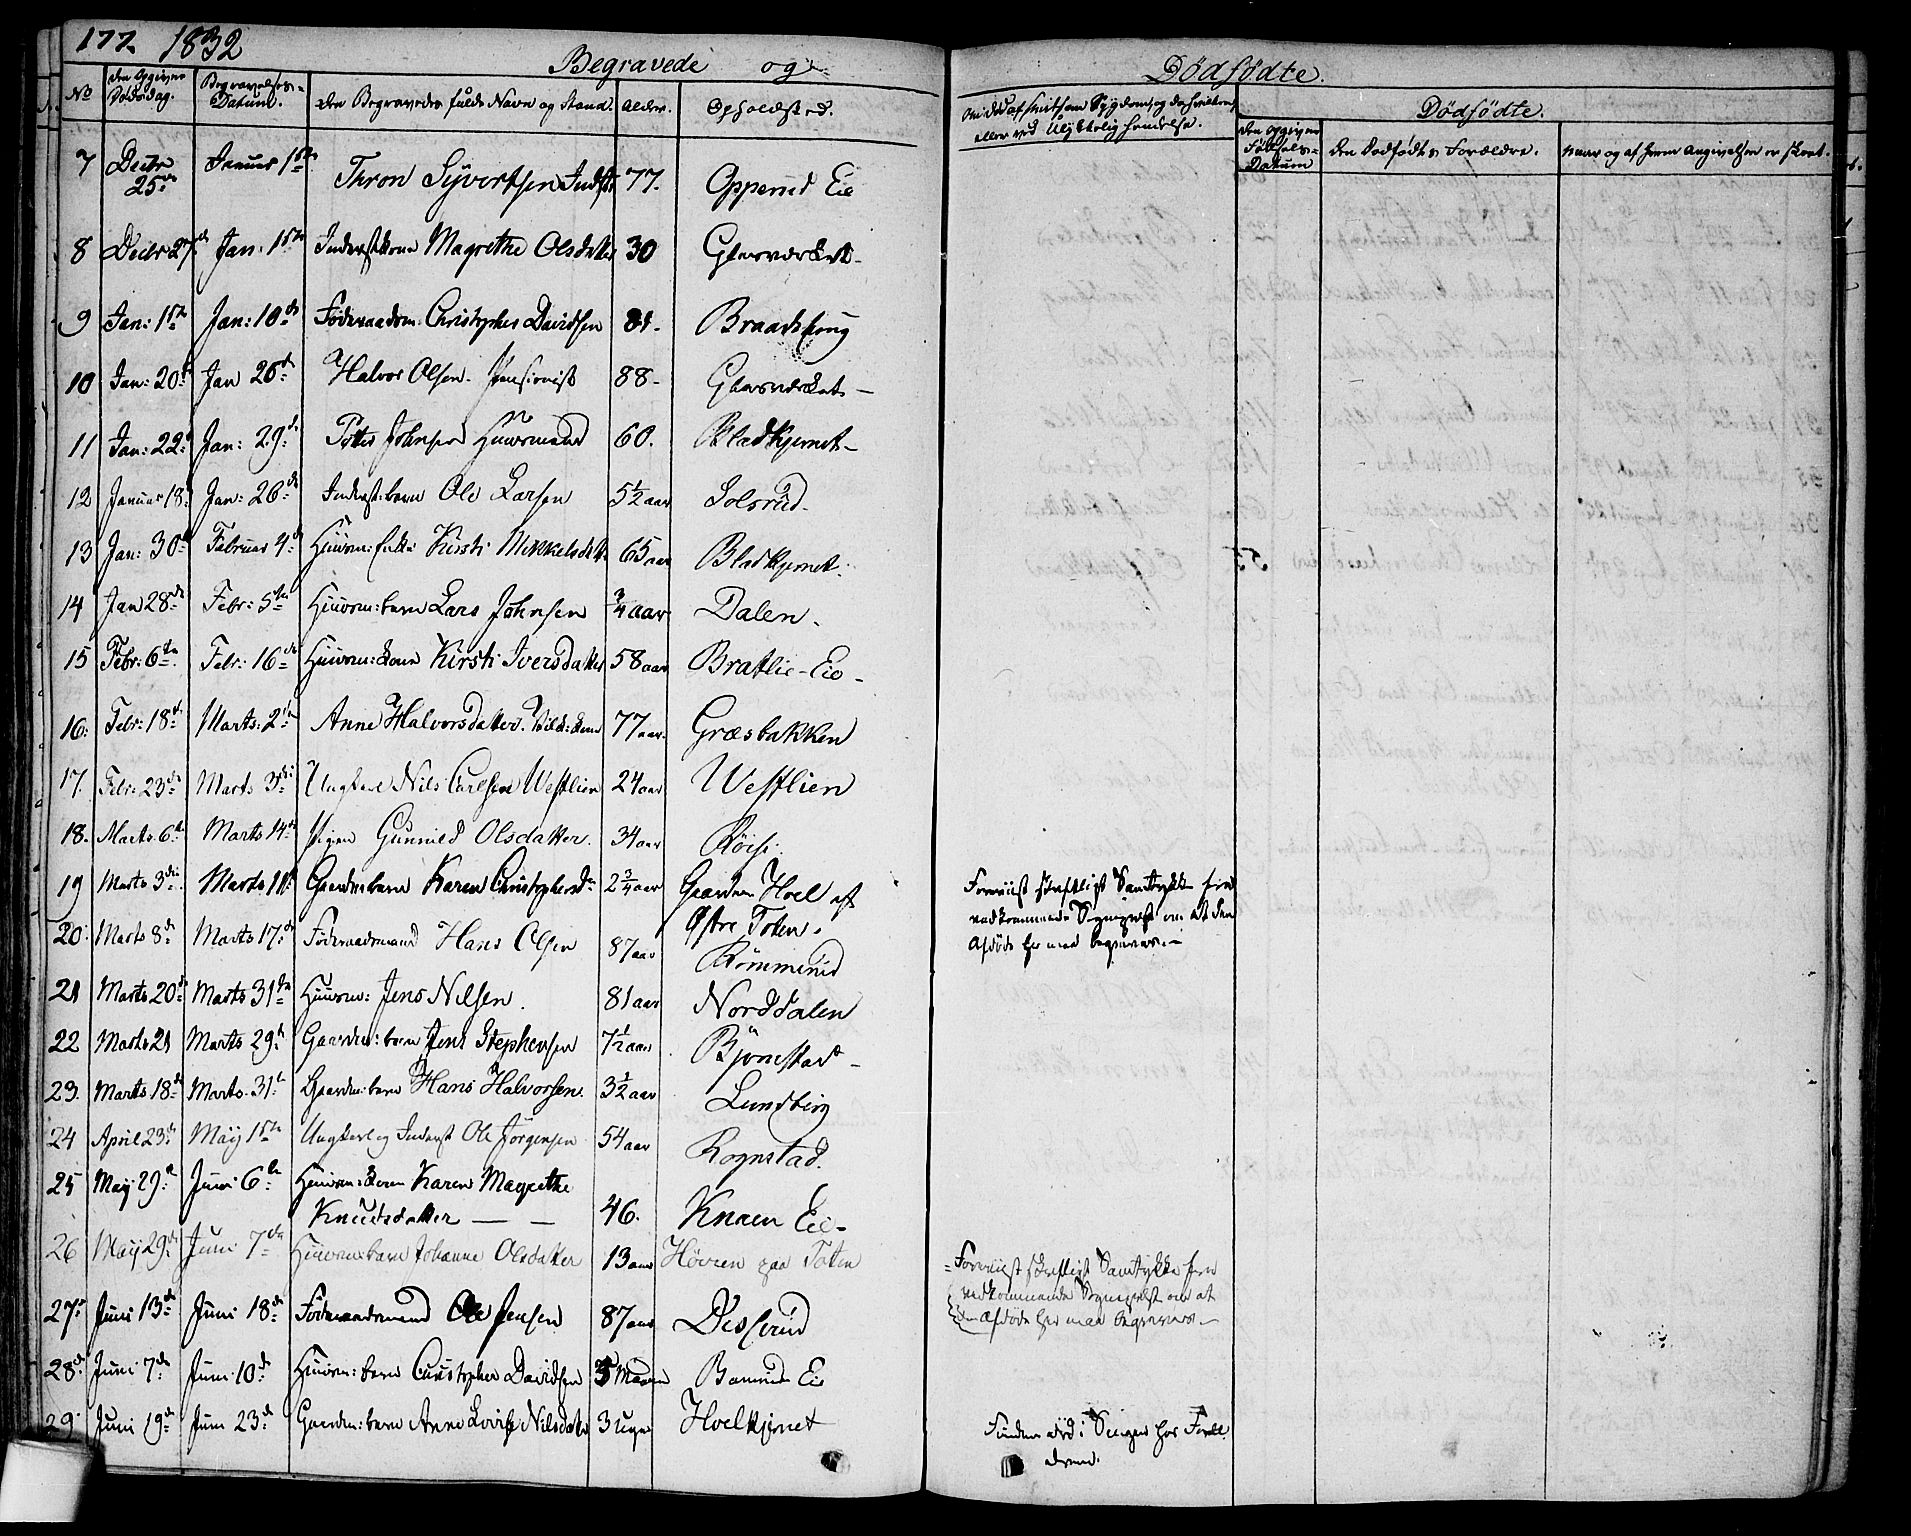 177. 1832
Begravede og Dødfødte.
No
den opgivne Dødsdag.
Begravelses-Datum.
den Begravedes fulde Navn og Stand.
Alder.
Opholdsted.
eller ved Ulykkelig Hændelse.
Dødfødte.
den opgivne Fødsels-Datum
den Dødfødtes Forældre.
naar og af hvem Angivelsen er skeet.
7 Decbr 25de Januar 1ste Thron Syvertsen Inderst 77. Opperud Eie
8 Decbr 27de Jan: 1ste Inderstkone Magrethe Olsdatter 30 Glasværket-
9 Jan: 1ste Jan: 10de Føderaadsm. Christopher Davidsen 81. Braadskoug
10 Jan: 20de Jan 26de Halvor Olsen. Pensionist 88- Glasværket-
11 Jan: 22de Jan: 29de Johnsen Huusmand 60. Bladkjernet-
12 Januar 18de Jan: 26de Inderst:barn Ole Larsen 5½ aar Solsrud.
13 Jan: 30te Februar 4de Huusm: Enke Kirsti Mikkelsdatter 65 aar Bladkjernet.
14 Jan 28de Febr: 5te Huusm: barn Lars Johnsen ¾ aar Dalen.
15 Febr: 6te Febr: 16de Huusm: kone Kirsti Iversdatter 58 aar Bratlie-Eie-
16. Febr: 18de Marts: 2den Anne Halvorsdatter. 77 aar. Græsbakken
17. Febr: 23de Marts 3die Ungkarl Nils Carlsen Westlien 24 aar Westlien
18. Marts 6te Marts 14de Pigen Gunnild Olsdatter. 34 aar Røise.
19 Marts 3die Marts 11te Gaardm:barn Karen Christophersdr 2¾ aar Gaarden Hoel af
Østre Toten.
Foreviist skriftligt Samtykke fra
vedkommende Sognepræst om at den
Afdøde her maa begraves.-
20. Marts 8de Marts 17de Føderaadsmand Hans Olsen 87 aar Rømmerud
21 Marts 20de Marts 31te Huusm: Jens Nilsen. 81 aar Norddalen
22 Marts 21 Marts 29de Gaardm: barn Jens Stephensen 7½ aar Bjønestad-
23. Marts 18de Marts. 31te Gaardm:barn Hans Halvorsen. 3½ aar Lundberg
24 April 23de May 1ste Ungkarl og Inderst Ole Jørgensen 54 aar Rognstad.
25 May 29de Juni 6te Huusm: kone Karen Magrethe
Knudsdatter — — 46. Knaen Eie-
26 May 29de Juni 7de Huusm:barn Johanne Olsdatter 13 aar Høvren paa Toten
Foreviist skriftligt Samtykke fra
vedkommende Sognepræst om at
den Afdøde her maa begraves-
27de Juni 13de Juni 18de Føderaadsmand Ole Jensen 87 aar Desserud
28de Juni 7de Juni 10de Huusm: barn Christopher Davidsen 5 Maan Eie
29. Juni 19de Juni 23de Gaardm:barn Anne Lovise Nilsdatter 3 Uger Hoelkjernet
Funden død i Sengen hos Foræl-
drene.